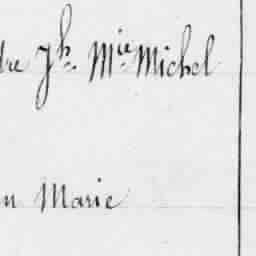 dre Jh. Mie Michel
n Marie